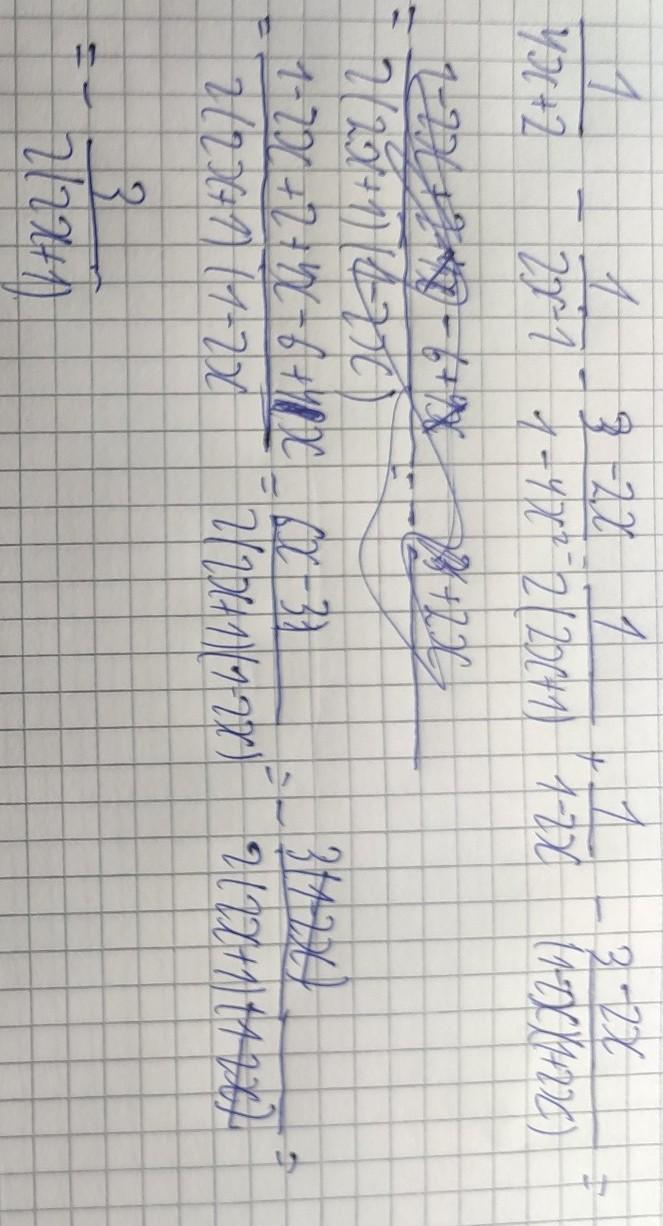 1/(4x+2) - 1/(2x-1) - (3-2x)/(1-4x²) = 1/(2(2x+1)) + 1/(1-2x) - (3-2x)/((1-2x)(1+2x)) =
= (1-2x+2+4x-6+4x)/(2(2x+1)(1-2x) = (6x-3)/(2(2x+1)(1-2x)) = - 3(1-2x)/(2(2x+1)(1-2x)) =
= - 3/(2(2x+1)